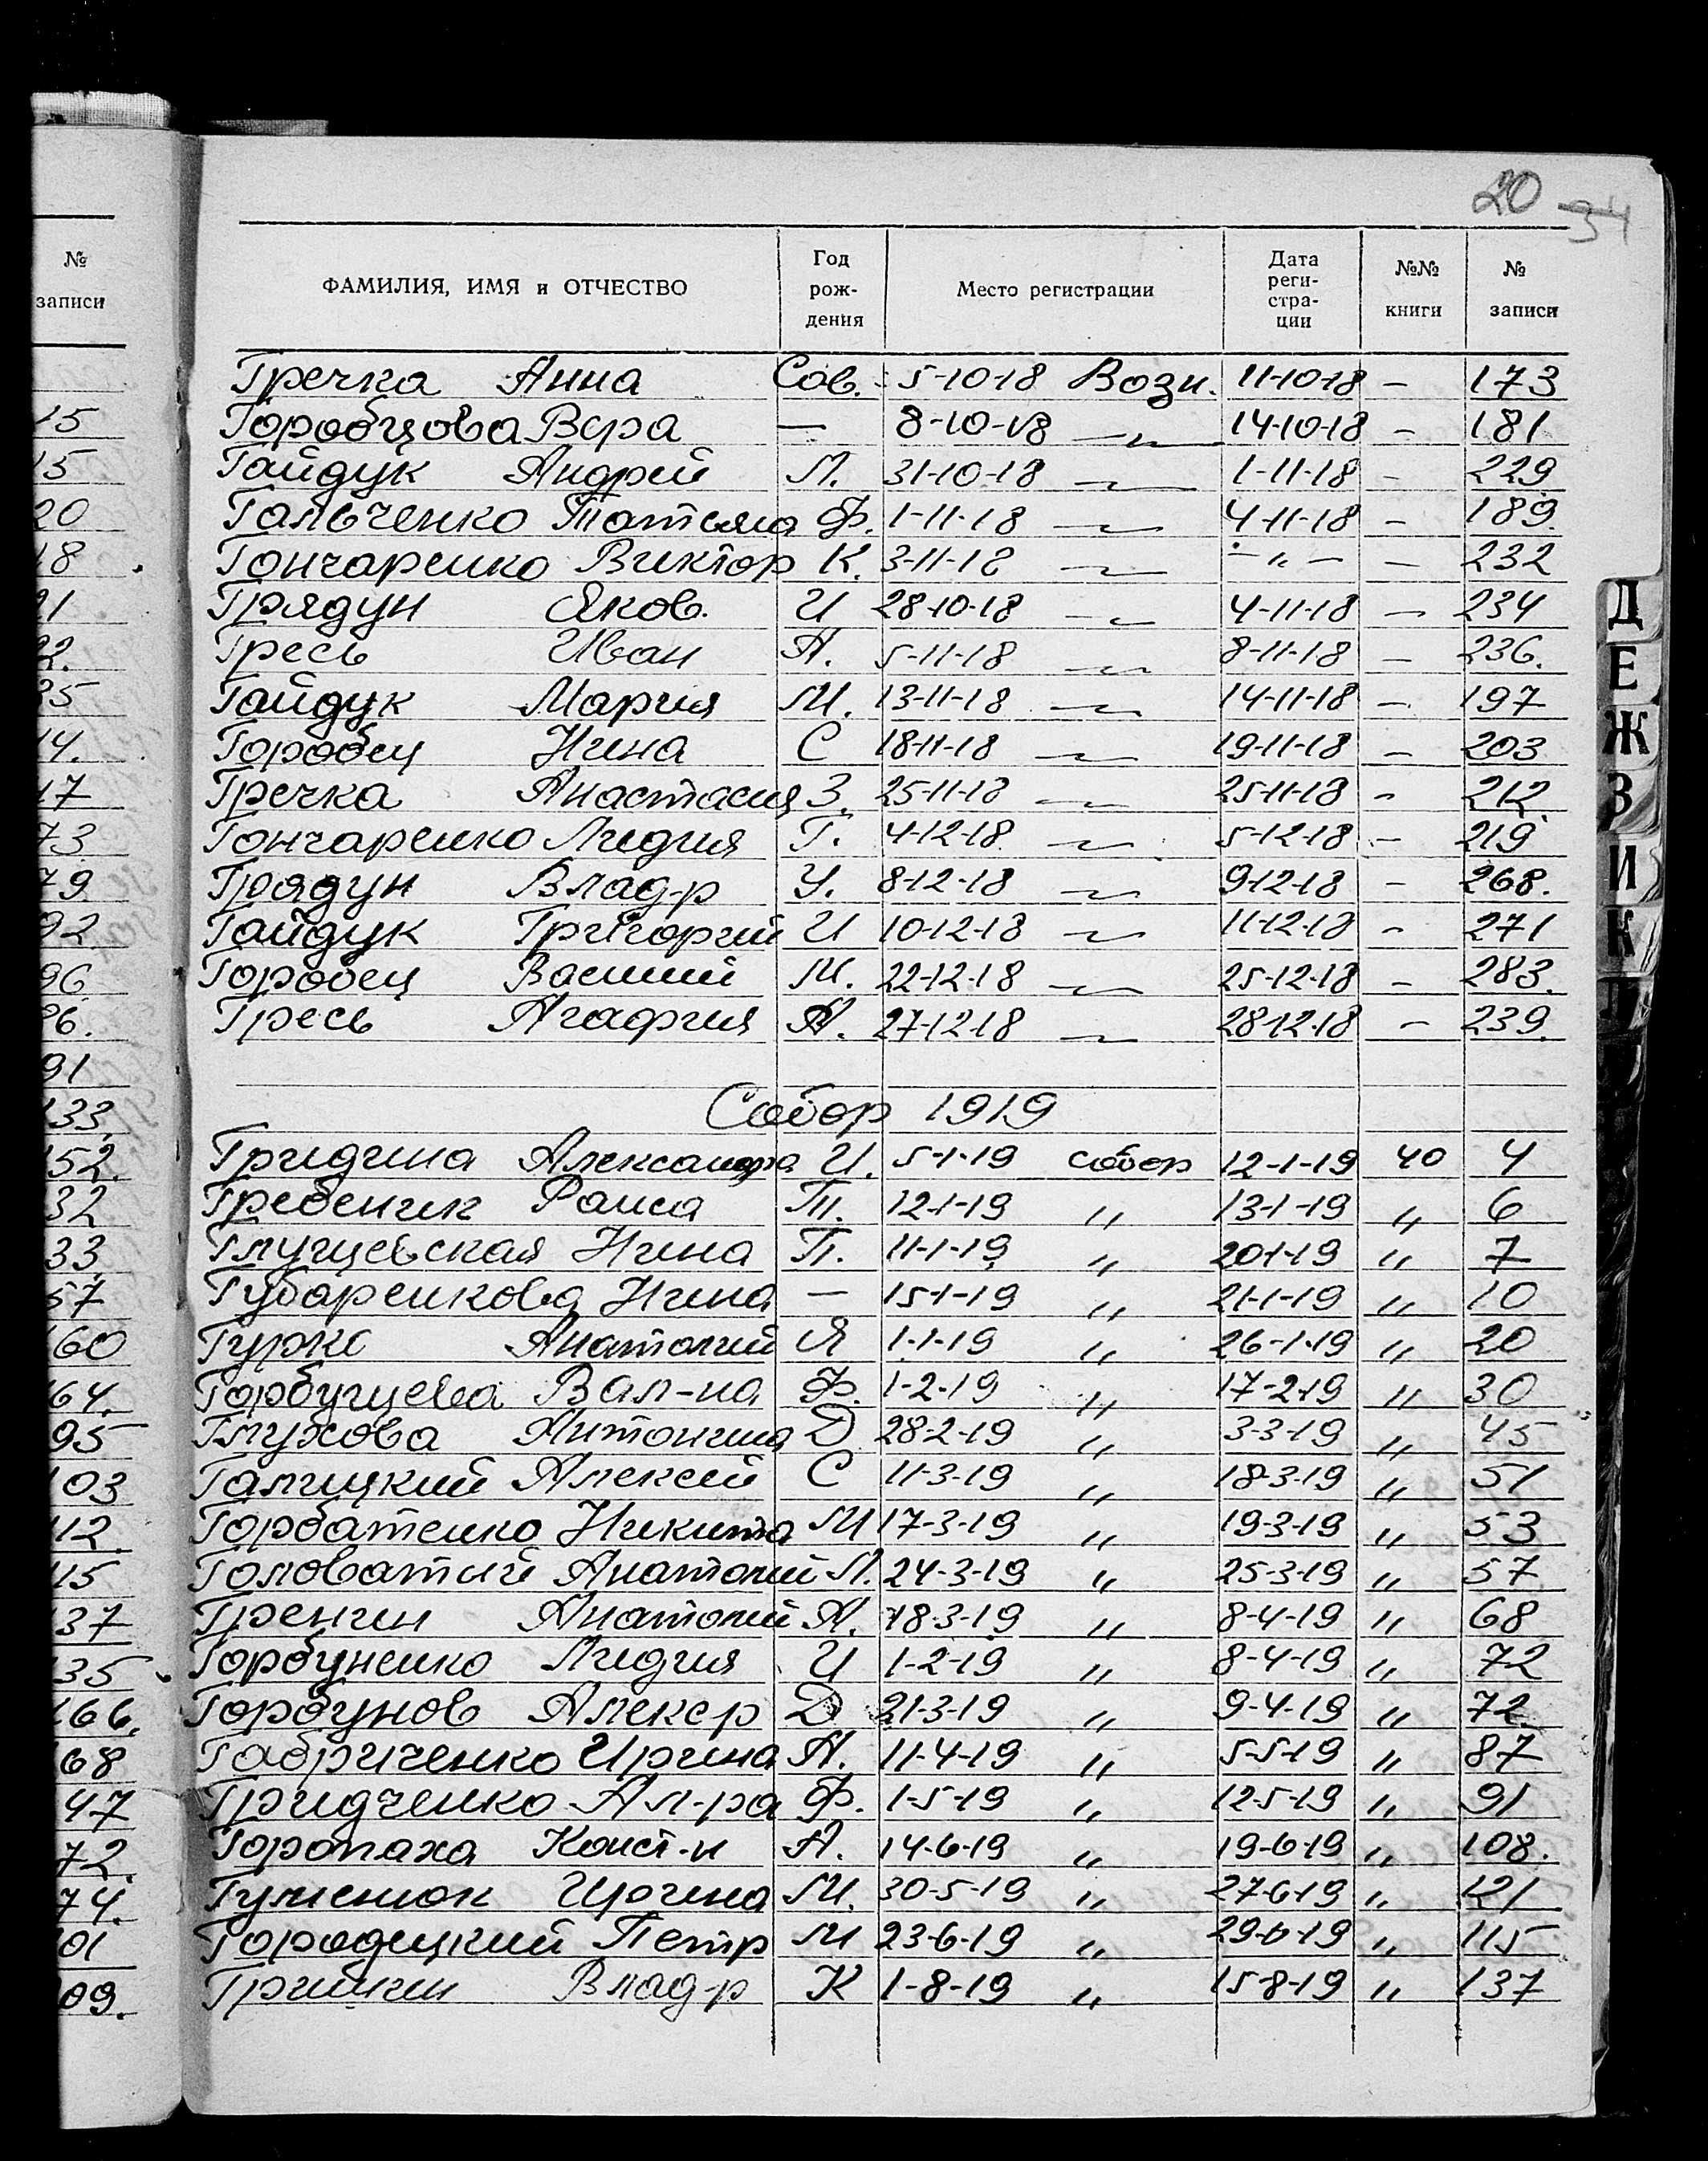 20 34
№ записи
ФАМИЛИЯ, ИМЯ и ОТЧЕСТВО Год рождения Место регистрации Дата регистрации №№ книги № записи
Гречка Анна Сав. 5-10-18 Возн. 11-10-18 — 173
Горобцова Вера — 8-10-18 —〃— 14-10-18 — 181
Гайдук Андрей Л. 31-10-18 —〃— 1-11-18 — 229
Гальченко Татьяна Ф. 1-11-18 —〃— 4-11-18 — 189.
Гончаренко Виктор К. 3-11-18 —〃— —〃— — 232
Грядун Яков. И 28-10-18 —〃— 4-11-18 — 234
Гресь Иван А. 5-11-18 —〃— 8-11-18 — 236.
Гайдук Мария М. 13-11-18 —〃— 14-11-18 — 197
Горобец Нина С 18-11-18 —〃— 19-11-18 — 203
Гречка Анастасия З. 25-11-18 —〃— 25-11-18 — 212
Гончаренко Лидия Г. 4-12-18 —〃— 5-12-18 — 219
Грядун Влад-р У. 8-12-18 —〃— 9-12-18 — 268.
Гайдук Григорий И 10-12-18 —〃— 11-12-18 — 271
Горобец Василий М. 22-12-18 —〃— 25-12-18 — 283.
Гресь Агафия А. 27-12-18 —〃— 28-12-18 — 239.
Собор 1919
Гридина Александра И. 5-1-19 собор 12-1-19 40 4
Гребеник Раиса Т. 12-1-19 〃 13-1-19 〃 6
Глущевская Нина П. 11-1-19 〃 20-1-19 〃 7
Губаренкова Нина — 15-1-19 〃 21-1-19 〃 10
Гурко Анатолий Я 1-1-19 〃 26-1-19 〃 20
Горбунцева Вал-на Ф. 1-2-19 〃 17-2-19 〃 30
Глухова Антонина Д 28-2-19 〃 3-3-19 〃 45
Галицкий Алексей С 11-3-19 〃 18-3-19 〃 51
Горбатенко Никита М 17-3-19 〃 19-3-19 〃 53
Головатий Анатолий Л. 24-3-19 〃 25-3-19 〃 57
Гренин Анатолий А. 18-3-19 〃 8-4-19 〃 68
Горбуненко Лидия И 1-2-19 〃 8-4-19 〃 72
Горбунов Алекс-р Д 21-3-19 〃 9-4-19 〃 72
Габриченко Ирина А. 11-4-19 〃 5-5-19 〃 87
Гридченко Ал-ра Ф. 1-5-19 〃 12-5-19 〃 91
Горопаха Конст-н А. 14-6-19 〃 19-6-19 〃 108.
Гуменюк Ирина М. 30-5-19 〃 27-6-19 〃 121
Городицкий Петр М 23-6-19 〃 29-6-19 〃 115
Влад-р К 1-8-19 〃 15-8-19 〃 137
Д
Е
Ж
З
И
К
Л